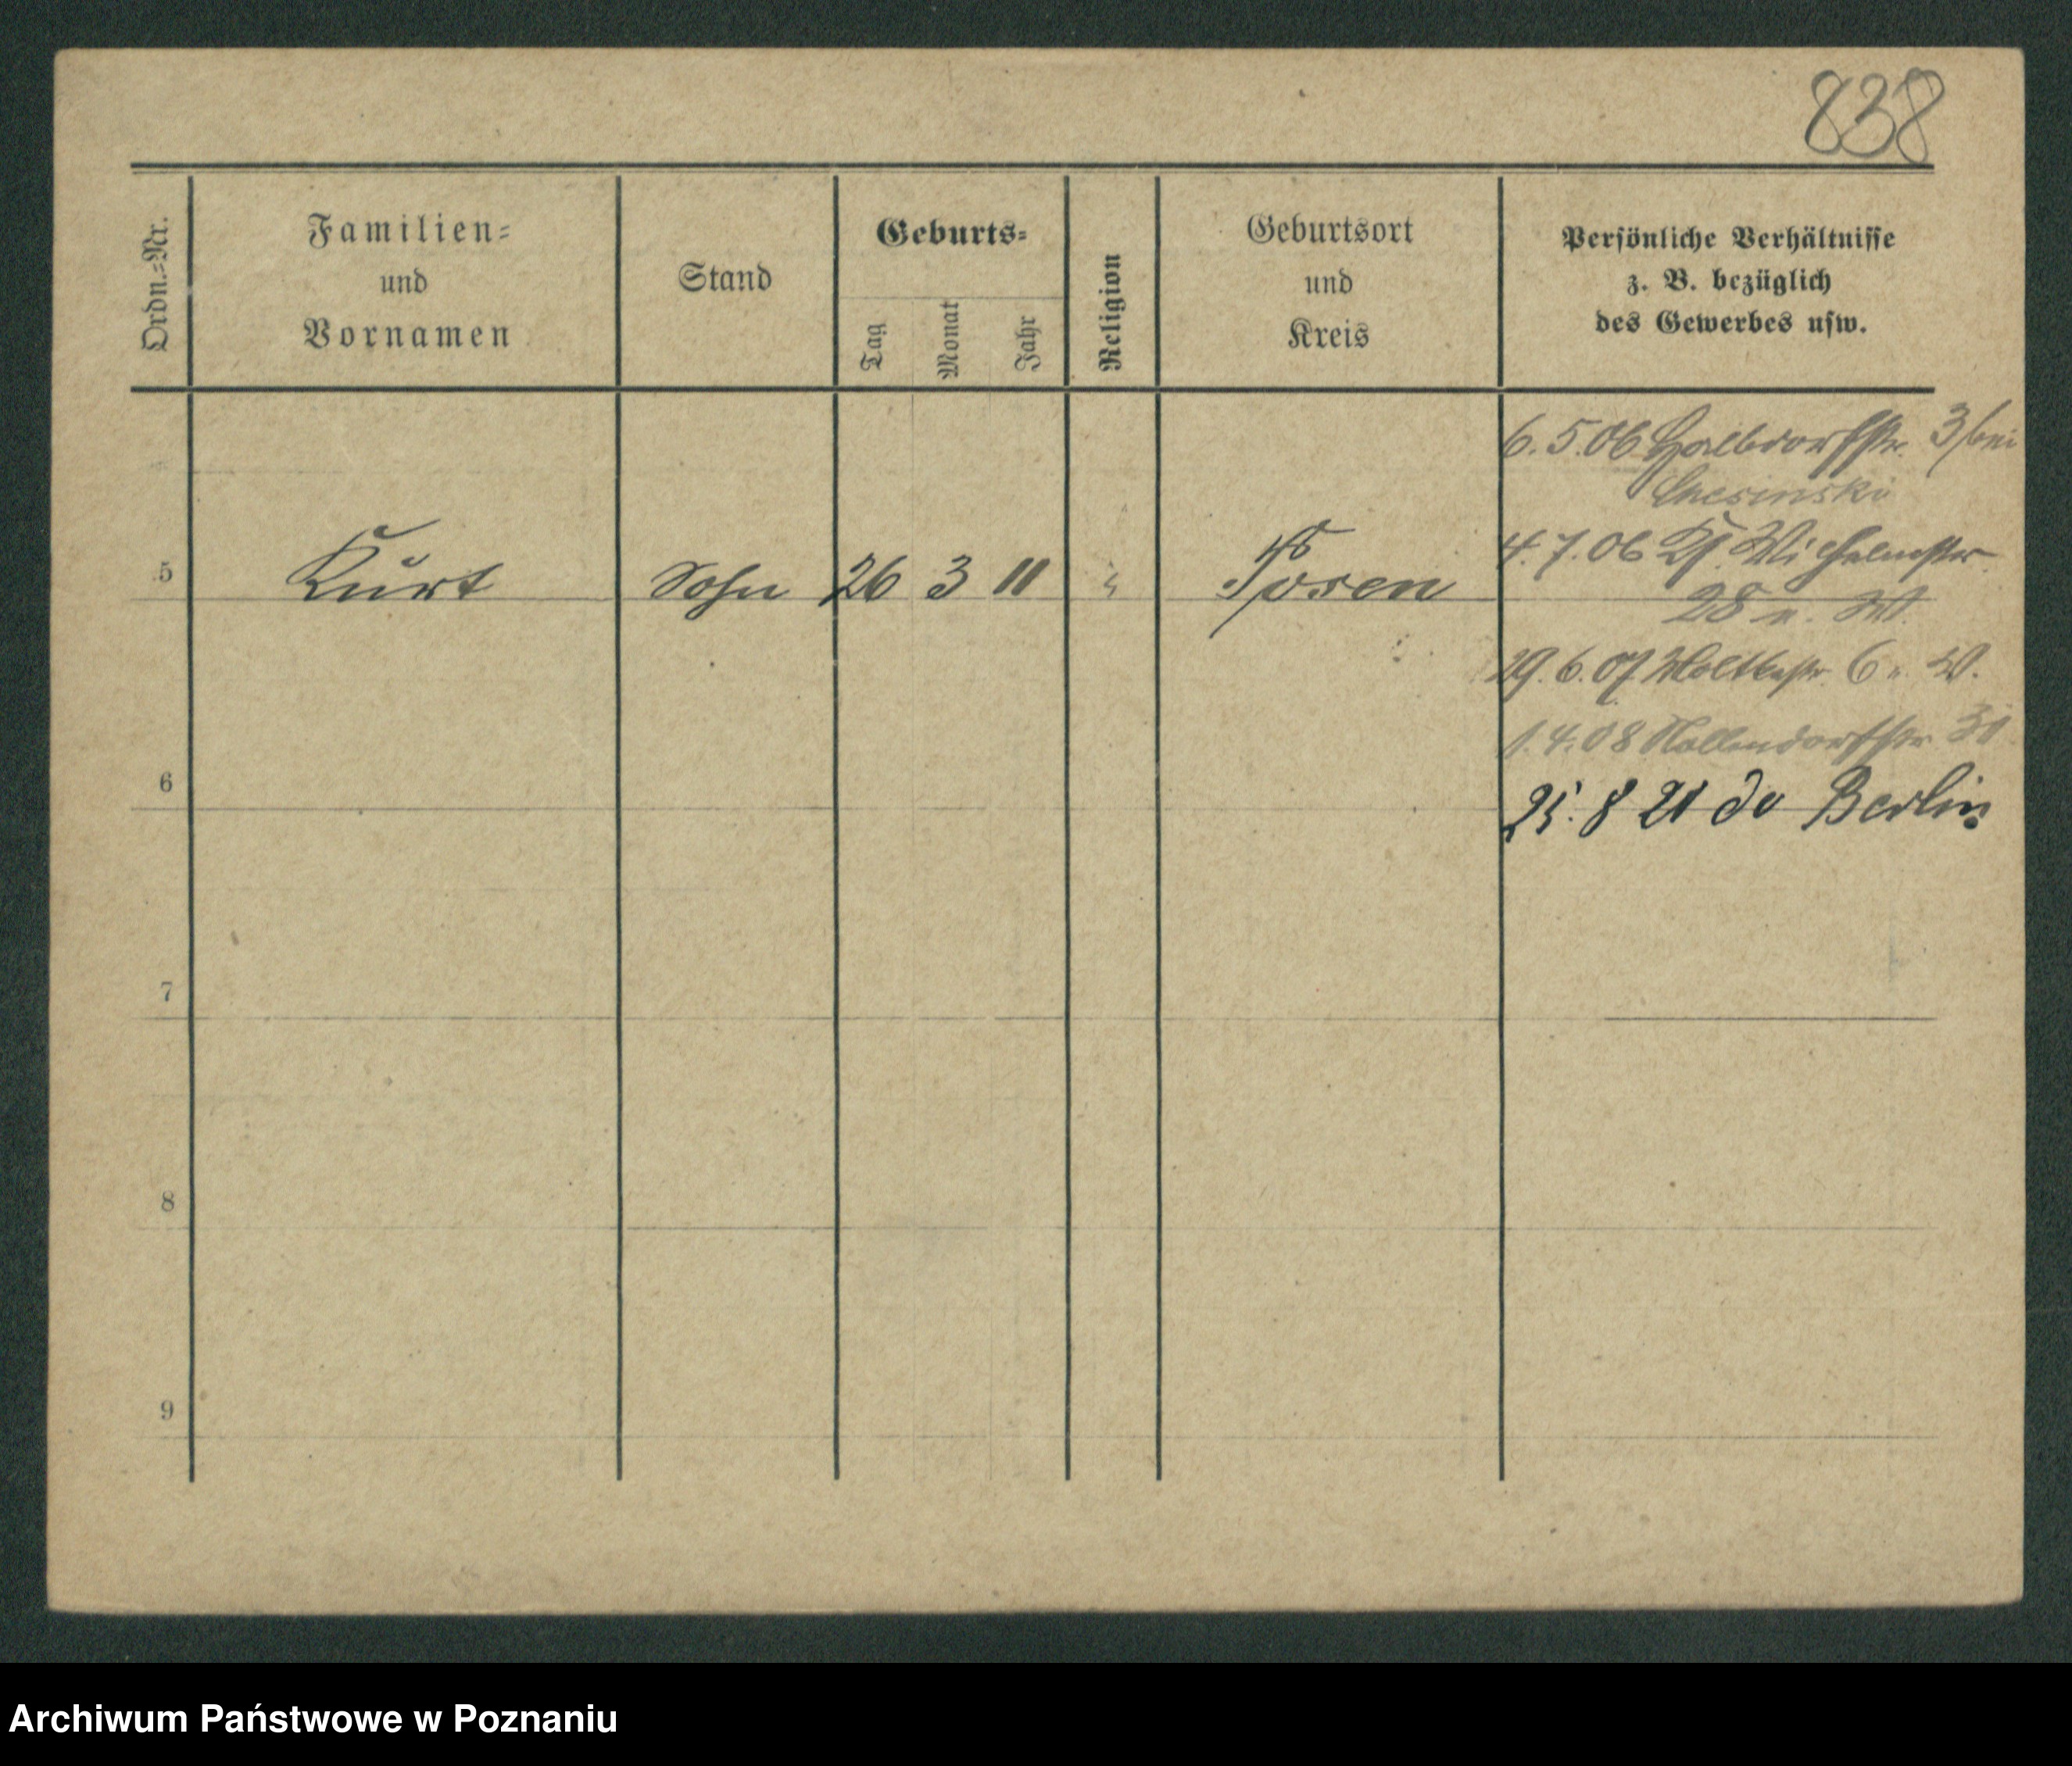 838
Ordn.-Nr.
Familien-
und
Vornamen
Stand
Geburts-
Tag
Monat
Jahr
Religion
Geburtsort
und
Kreis
Persönliche Verhältnisse
z. B. bezüglich
des Gewerbes usw.
6.5.06 Halbdorfstr. 3 bei
4.7.06 Wilhelmstr.
28
5 Kurt Sohn 26 3 11 " Posen
29.6.07 Moltkestr. 6 W.
1.4.08 Hollendorfstr. 31
6
25. 8 21 do Berlin
7
8
9
Archiwum Państwowe w Poznaniu